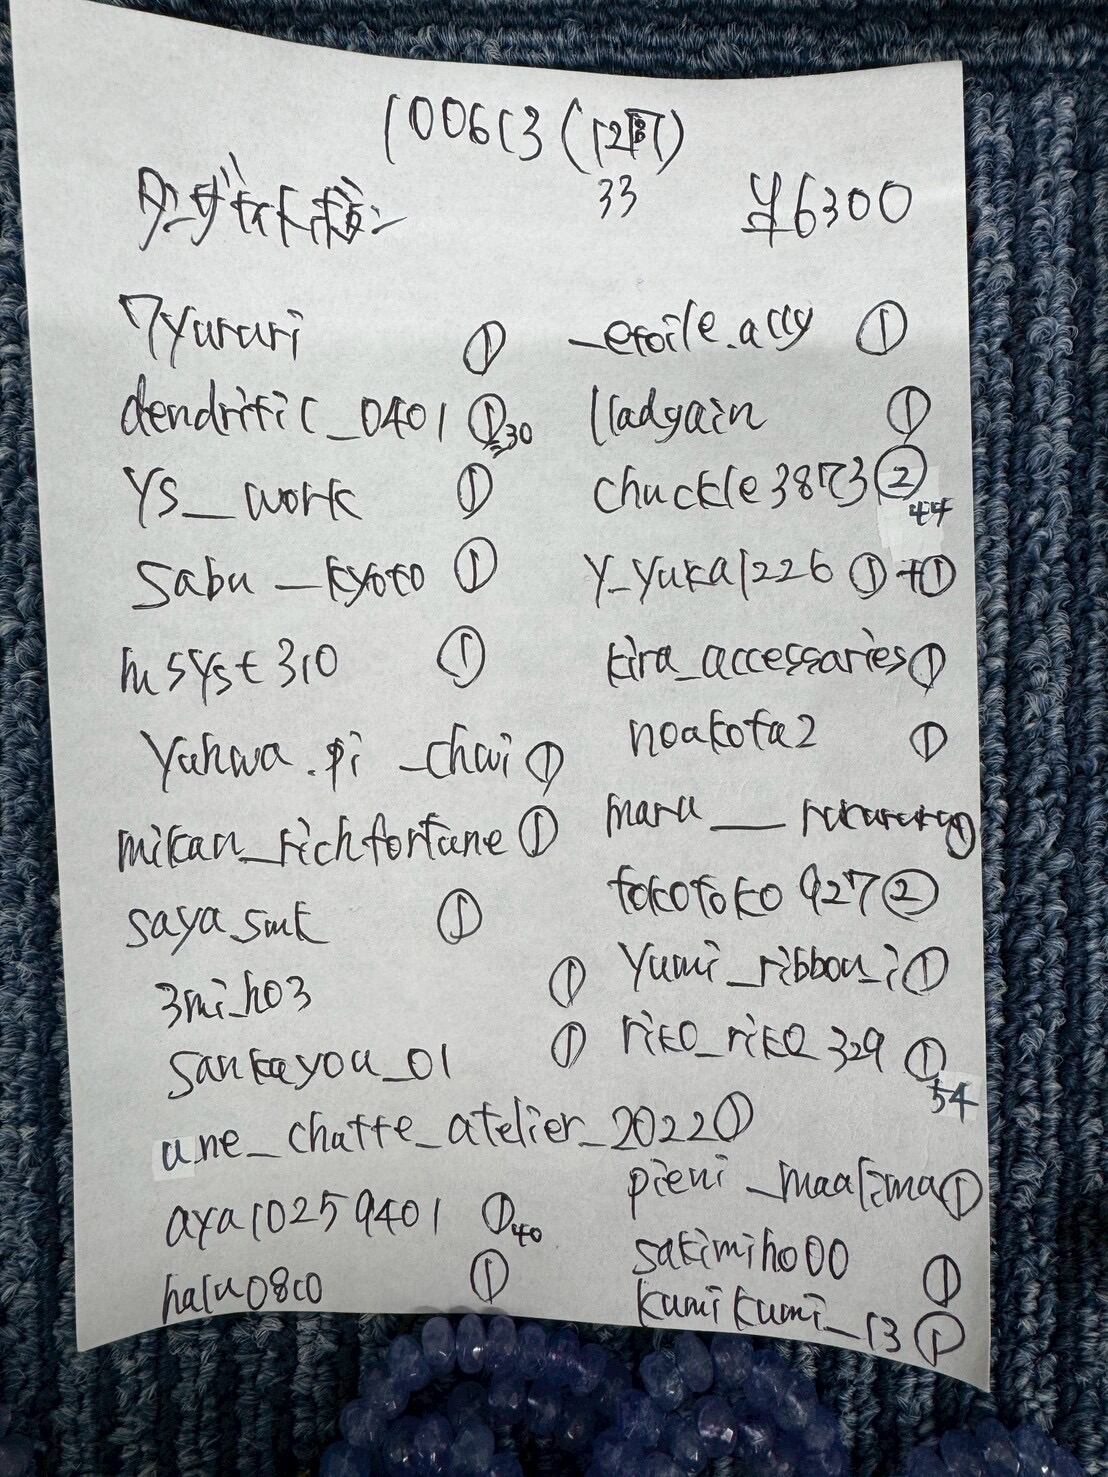 100613 (12周)
33
タンザナイトボタン ¥6300
7yururi ①
dendritic_0401 ①30
ys__work ①
sabu_kyoto ①
msyst310 ①
yahwa.pi_chai ①
mikan_richfortune ①
saya_smk ①
3mi_ho3 ①
sankayou_01 ①
une_chatte_atelier_2022 ①
aya10259401 ①40
halu0810 ①
_etoile.accy ①
lladyain ①
chuckle3873 ②44
y_yuka1226 ①+①
kira_accessaries ①
noakota2 ①
maru__rurururu ①
tokotoko927 ②
yumi_ribbon_i ①
riko_riko_329 ①54
pieni_maalima ①
sakimiho00 ①
kumikumi_13 ①